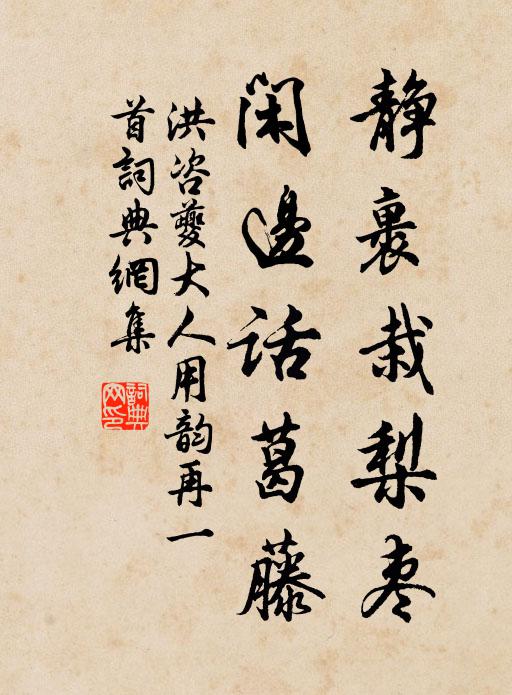 静裏栽梨枣
闲邊話葛藤
洪咨夔大人用韵再一
首詞典網集
詞典
网印